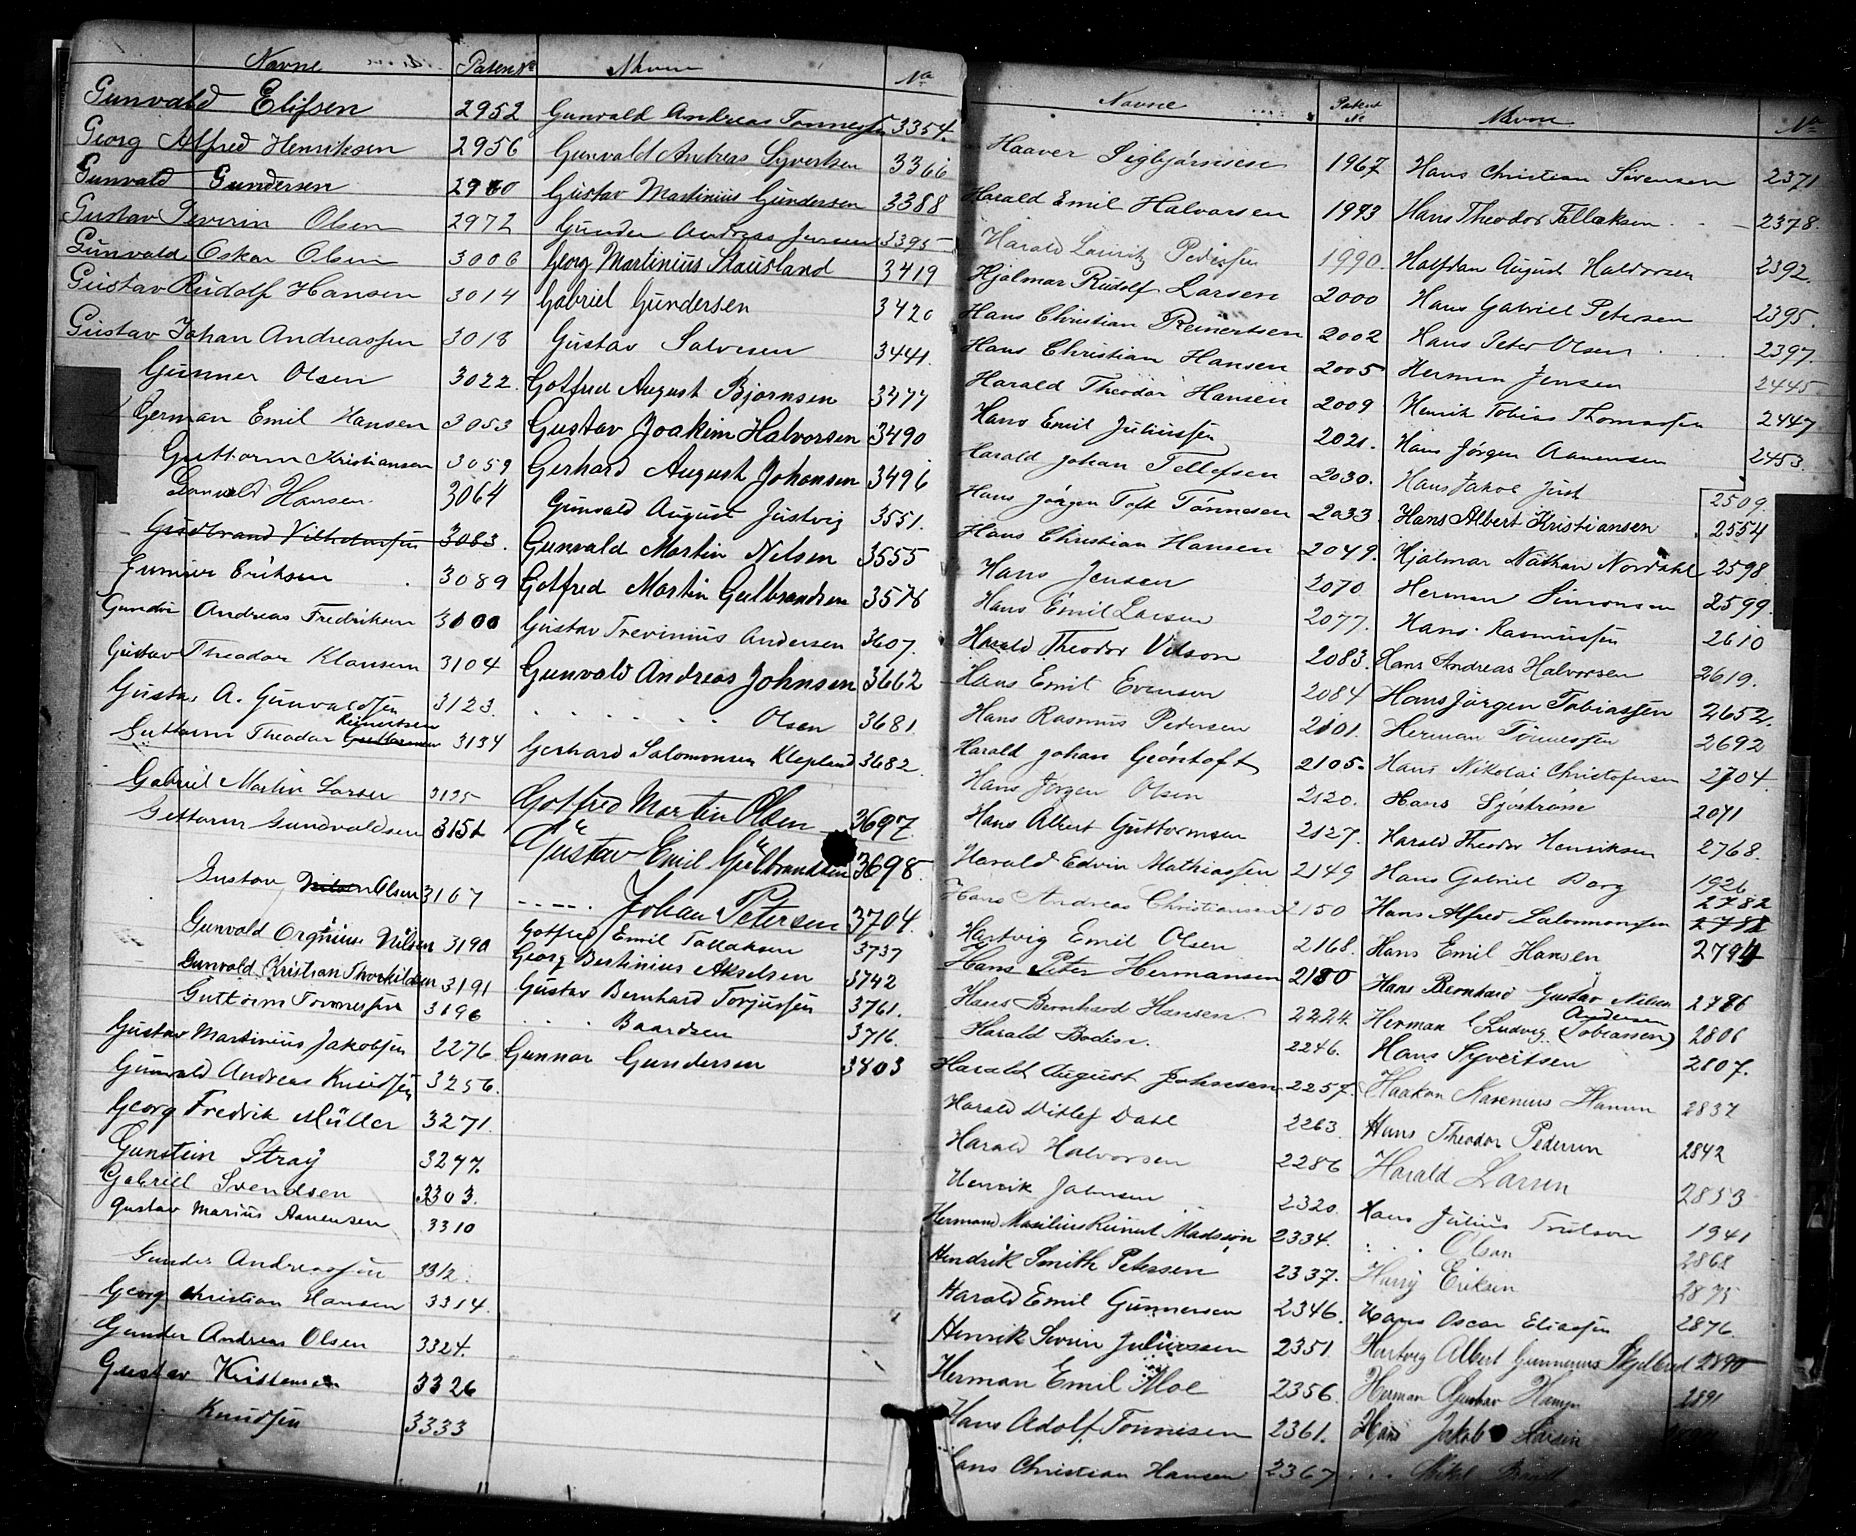 Navne Patent No
Gunvald Elifsen 2952
Georg Alfred Henriksen 2956
Gunvald Gundersen 2960
Gustav Severin Olsen 2972
Gunvald Oskar Olsen 3006
Gustav Rudolf Hansen 3014
Gustav Johan Andreassen 3018
Gunner Olsen 3022
German Emil Hansen 3053
Guttorm Kristiansen 3059
Hansen 3064
Gudbrand Vilhelmsen 3083
Gunner Eriksen 3089
Gunder Andreas Fredriksen 3100
Gustav Theodor Klausen 3104
Gustav A. Gunvaldsen 3123
Reinertsen
Guttorm Theodor Guttormsen 3134
Gabriel Martin Larsen 3135
Guttorm Gundvaldsen 3151
Gustav Nilsen Olsen 3167
Gunvald Orgenius Nilsen 3190
Gunvald Kristian Thorkildsen 3191
Guttorm Tønnessen 3196
Gustav Martinius Jakobsen 2276
Gunvald Andreas Knudsen 3256
Georg Fredrik Müller 3271
Gunstein Stray 3277
Gabriel Svendsen 3303
Gustav Marius Aanensen 3310
Gunder Andreassen 3312
Georg Christian Hansen 3314
Gunder Andreas Olsen 3324
Gustav Kristensen 3326
Knudsen 3333
Navne No
Gunvald Andreas Tønnessen 3354
Gunvald Andreas Syvertsen 3366
Gustav Martinius Gundersen 3388
Gunder Andreas Jensen 3395
Georg Martinius Stausland 3419
Gabriel Gundersen 3420
Gustav Salvesen 3441
Gotfred August Bjørnsen 3477
Gustav Joakim Halvorsen 3490
Gerhard August Johansen 3496
Gunvald August Justvig 3551
Gunvald Martin Nilsen 3555
Gotfred Martin Gulbrandsen 3576
Gustav Trevinius Andersen 3607
Gunvald Andreas Johnsen 3662
Olsen 3681
Gerhard Salomonsen Klepland 3682
Gotfred Martin Olsen 3697
Gustav Emil Gulbrandsen 3698
Johan Petersen 3704
Gotfred Emil Tallaksen 3737
Georg Bertinius Akselsen 3742
Gustav Bernhard Torjussen 3761
Baardsen 3716
Gunnar Gundersen 3403
Navne Patent No
Haaver Sigbjørnsen 1967
Harald Emil Halvorsen 1983
Harald Lauritz Pedersen 1990
Hjalmar Rudolf Larsen 2000
Hans Christian Reinertsen 2002
Hans Christian Hansen 2005
Harald Theodor Hansen 2009
Hans Emil Juliussen 2021
Harald Johan Tellefsen 2030
Hans Jørgen Toft Tønnesen 2033
Hans Christian Hansen 2049
Hans Jensen 2070
Hans Emil Larsen 2077
Harald Theodor Vilson 2083
Hans Emil Evensen 2084
Hans Rasmus Pedersen 2101
Harald Johan Grøntoft 2105
Hans Jørgen Olsen 2120
Hans Albert Guttormsen 2127
Harald Edvin Mathiassen 2149
Hans Andreas Christiansen 2150
Hartvig Emil Olsen 2168
Hans Peter Hermansen 2180
Hans Bernhard Hansen 2224
Harald Bodin 2246
Harald August Johnsen 2257
Harald Ditlef Dahl 2263
Harald Halvorsen 2286
Henrik Johnsen 2320
Hermand Maxilius Reinert Madssøn 2334
Hendrik Smith Petersen 2337
Harald Emil Gunnersen 2346
Henrik Severin Juliussen 2351
Herman Emil Moe 2356
Hans Adolf Tønnesen 2361
Hans Christian Hansen 2367
Navne No
Hans Christian Sørensen 2371
Hans Theodor Tallaksen 2378
Halfdan August Haldorsen 2392
Hans Gabriel Petersen 2395
Hans Peter Olsen 2397
Herman Jensen 2445
Henrik Tobias Thomassen 2447
Hans Jørgen Aanensen 2453
Hans Jakob Just 2509
Hans Albert Kristiansen 2554
Hjalmar Nathan Nordahl 2598
Herman Simonsen 2599
Hans Rasmussen 2610
Hans Andreas Halvorsen 2619
Hans Jørgen Tobiassen 2652
Herman Tønnessen 2692
Hans Nikolai Christofersen 2704
Hans Sjøstrøm 2071
Harald Theodor Henriksen 2768
Hans Gabriel Dorg 1926
2782
Hans Alfred Salomonsen
Hans Emil Hansen 2794
Hans Bernhard Gustav Nilsen 2786
Andersen
Herman Ludvig (Tobiassen) 2806
Hans Syvertsen 2807
Haakon Karenius Hansen 2837
Hans Theodor Pedersen 2842
Harald Larsen 2853
Hans Julius Trulson 1941
Olsen 2868
Harry Eriksen 2875
Hans Oscar Eliassen 2876
Hartvig Albert Gunnerus Skjelbred 2890
Herman Gustav Hansen 2891
Hans Jakob Larsen